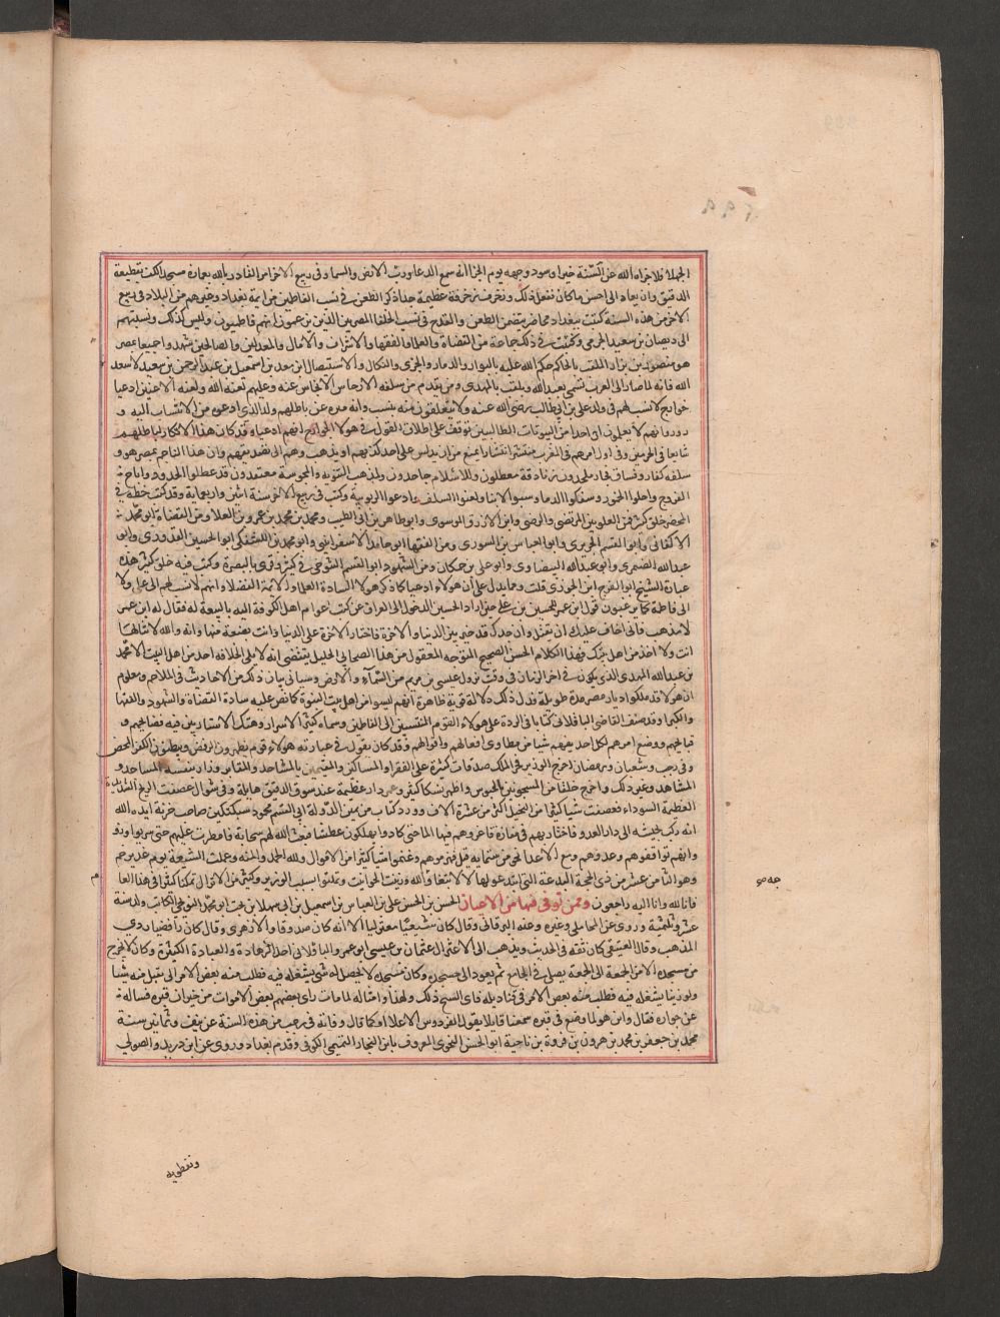 الجهلا فلا جزاه الله عن السنة خيرا وسود وجهه يوم الجزا انه سميع الدعا ورب الارض والسما وفى ربيع الاخر امر القادر بالله بعمارة مسجد الكف بقطيعة
الدقيق وان يعاد الى احسن ما كان ففعل ذلك وزخرف زخرفة عظيمة جدا ذكر الطعن فى نسب الفاطميين من ايمة بغداد وغيرهم من البلاد فى ربيع
الاخر من هذه السنة كتبت ببغداد محاضر بتضمن الطعن والقدح فى نسب الخلفا المصريين الذين يزعمون انهم فاطميون وليس كذلك ونسبتهم
الى ديصان بن سعيد الخرمى وكتب فى ذلك جماعة من القضاة والعلما والفقها والاشراف والاماثل والمعدلين والصالحين شهدوا جميعا ان
هو منصور بن نزار الملقب بالحاكم حكم الله عليه بالبوار والدمار والخزى والنكال والاستيصال ابن معد بن اسمعيل بن عبد الرحمن بن سعيد لا اسعد
الله فانه لما صار الى الغرب تسمى بعبيد الله وتلقب بالمهدى ومن تقدم من سلفه الارجاس الانجاس عنه وعليهم لعنة الله ولعنة اللاعنين ادعيا
خوارج لا نسب لهم فى ولد على بن ابى طالب رضى الله عنه ولا يتعلقون منه بسبب وانه منزه عن باطلهم وان الذى ادعوه من الانتساب اليه
وزور وانهم لا يعلمون ان احدا من اهل بيوتات الطالبيين توقف على اطلاق القول فى هولا الخوارج انهم ادعيا وقد كان هذا الانكار لباطلهم
شايعا فى الحرمين وفى اول امرهم فى المغرب منتشرا انتشارا يمنع من ان يدلس على احد كذبهم او يذهب وهم الى تصديقهم وان هذا الناجم بمصر هو و
سلفه كفار وفساق فجار ملحدون زنادقة معطلون وللاسلام جاحدون ولمذهب الثنوية والمجوسية معتقدون قد عطلوا الحدود واباحوا
الفروج واحلوا الخمور وسفكوا الدما وسبوا الانبيا ولعنوا السلف وادعوا الربوبية وكتب فى ربيع الاخر سنة اثنين واربعماية وقد كتب خطه فى
المحضر خلق كثير فمن العلويين المرتضى والرضى وابن الازرق الموسوى وابو طاهر بن ابى الطيب ومحمد بن محمد بن عمر وبن ابى العلا ومن القضاة ابو محمد
الاكفانى وابو القسم الجزرى وابو العباس بن السورى ومن الفقها ابو حامد الاسفراينى وابو محمد بن الكشفلى وابو الحسين القدورى وابو
عبد الله الصيمرى وابو عبد الله البيضاوى وابو على بن حمكان ومن الشهود ابو القسم التنوخى فى كثير وقرى بالبصرة وكتب فيه خلق كثير هذه
عبارة الشيخ ابو الفرج ابن الجوزى قلت ومما يدل على ان هولاء ادعيا كما ذكر هولا السادة العلما والايمة الفضلا وانهم لا نسب لهم الى على ولا
الى فاطمة كما يزعمون قول ابن عمر للحسين بن على حين اراد الدخول الى العراق عن كتب عوام اهل الكوفة اليه بالبيعة له فقال له ابن عمر
لا تذهب فانى اخاف عليك ان تقتل وان جدك قد خير بين الدنيا والاخرة فاختار الاخرة على الدنيا وانت بضعة منه وانه والله لا تنالها
انت ولا احد من اهل بيتك فهذا الكلام الحسن الصحيح المتوجه المعقول من هذا الصحابى الجليل يقتضى انه لا يلى الخلافه احد من اهل البيت الا محمد
بن عبد الله المهدى الذى يكون فى اخر الزمان فى وقت نزول عيسى بن مريم من السماء والارض وسياتى بيان ذلك من الاحاديث فى الملاحم ومعلوم
ان هولا قد ملكوا ديار مصر مدة طويلة فدل ذلك دلالة قوية ظاهرة انهم ليسوا من اهل بيت النبوة كما نص عليه سادة القضاة والشهود والفقها
والكبرا وقد صنف القاضى الباقلانى كتابا فى الردة على هولاء القوم المنتسبين الى الفاطميين وسماه كشف الاسرار وهتك الاستار بين فيه فضايحهم و
قبايحهم ووضح امرهم لكل احد يفهم شيا من مطاوى افعالهم واقوالهم وقد كان يقول فى عبارته هولاء قوم يظهرون الرفض ويبطنون الكفر المحض
وفى رجب وشعبان ورمضان اخرج الوزير فخر الملك صدقات كثيرة على الفقرا والمساكين والمقيمين بالمشاهد والمقابر وزار بنفسه المساجد و
المشاهد وغير ذلك واخرج خلقا من المسجونين بالحبوس واظهر نسكا كثيرا وعمر دارا عظيمة عند سوق الدقيق هايلة وفى شوال عصفت الريح الشديدة
العظيمة السوداء فقصفت شيا كثيرا من النخيل اكثر من عشرة الاف وورد كتاب من يمين الدولة ابى القسم محمود سبكتكين صاحب غزنة ايده الله
انه ركب بجيشه الى دار العدو فاجتاز بهم فى مفازة فاعوزهم فيها الما حتى كادوا يهلكون عطشا فبعث الله لهم سحابة فامطرت عليهم حتى شربوا ورووا
وانهم توافقوهم وعدوهم ومع الاعدا نحو من ستمايه فيل فهزموهم وغنموا شيا كثيرا من الاموال ولله الحمد والمنة وعملت الشيعة يوم غدير خم
وهو الثامن عشر من ذى الحجة البدعة التى ابتدعوها لا لابتغا الله وزينت الحوانيت وتمكنوا بسبب الوزير وكثير من الاتراك تمكنا كثيرا فى هذا العا
فانا لله وانا اليه راجعون وممن توفى فيها من الاعيان الحسن بن الحسن على بن العباس بن اسمعيل بن ابى سهل بن نوبخت ابو محمد النوبختى الكاتب ولد سنة
عشر وثلثمئة وروى عن المحاملى وغيره وعنه البرقانى وقال كان شيعيا معتزليا الا انه كان صدوقا والازهرى وقال كان رافضيا ردى
المذهب وقال العتيقى كان ثقة فى الحديث ويذهب الى الاعتزال عثمان بن عيسى ابو عمرو الباقلانى احد الزهاد ذو العبادة الكثيرة وكان لا يخرج
من مسجده الا من الجمعة الى الجمعة يصلى فى الجامع ثم يعود الى مسجده وكان مسجده لا يحصل له شى يشعله فيه فطلب منه بعض الامرا ان يقبل منه شيا
ولو زيتا يشعله فيه فطلب منه بعض الامر فى قناديله فابى الشيخ ذلك ولهذا وامثاله لما مات راى بعضهم بعض الاموات من جيران قبره فساله
عن جواره فقال واين هو لما وضع فى قبره سمعنا قايلا يقول الفردوس الاعلا او كما قال وفاته فى رجب من هذه السنة عن نيف وثمانين سنة
محمد بن جعفر بن محمد بن هرون بن فروة بن ناجية ابو الحسن النحوى المعروف بابن النجار التميمى الكوفى وقدم بغداد وروى عن ابن دريد والصولى
ونفطويه